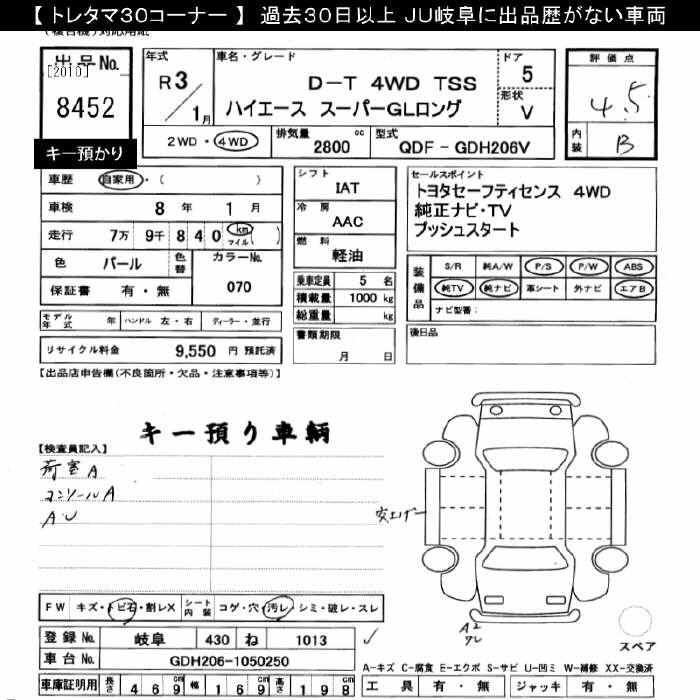 【 トレタマ30コーナー 】 過去30日以上 JU岐阜に出品歴がない車両
出品No.
[2010]
8452
キー預かり
年式
R 3/1月
車名・グレード
D-T 4WD TSS
ハイエース スーパーGLロング
ドア
5
形状
V
評価点
4.5
内装
B
2WD・4WD
排気量
2800 cc
型式
QDF - GDH206V
車歴 自家用・( )
車検 8 年 1 月
走行 7万 9千 8 4 0 km マイル ( )
色 パール 色替 カラーNo.
070
保証書 有・無
シフト
IAT
冷房
AAC
燃料
軽油
乗車定員 5 名
積載量 1000 kg
総重量 kg
書類期限
月 日
セールスポイント
トヨタセーフティセンス 4WD
純正ナビ・TV
プッシュスタート
装備品
S/R 純A/W P/S P/W ABS
純TV 純ナビ 革シート 外ナビ エアB
ナビ型番:
後日品
モデル年式 年 ハンドル 左・右 ディーラー・並行
リサイクル料金 9,550 円 預託済
【出品店申告欄(不良箇所・欠品・注意事項等)】
キー預り車輌
【検査員記入】
荷室 A
コンソール A
A U
FW キズ・トビ石・割レX シート内装 コゲ・穴・汚レ・シミ・破レ・スレ
登録No. 岐阜 430 ね 1013
車台No. GDH206-1050250
車庫証明用 長さ 4 6 9 cm 幅 1 6 9 cm 高さ 1 9 8 cm
A2
スペア
A-キズ C-腐食 E-エクボ S-サビ U-凹ミ W-補修 XX-交換済
工具 有・無 ジャッキ 有・無